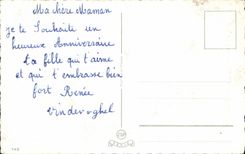 Ma chère Maman
je te Souhaite un
heureux Anniversaire
ta fille qui t'aime
et qui t'embrasse bien
fort Renée